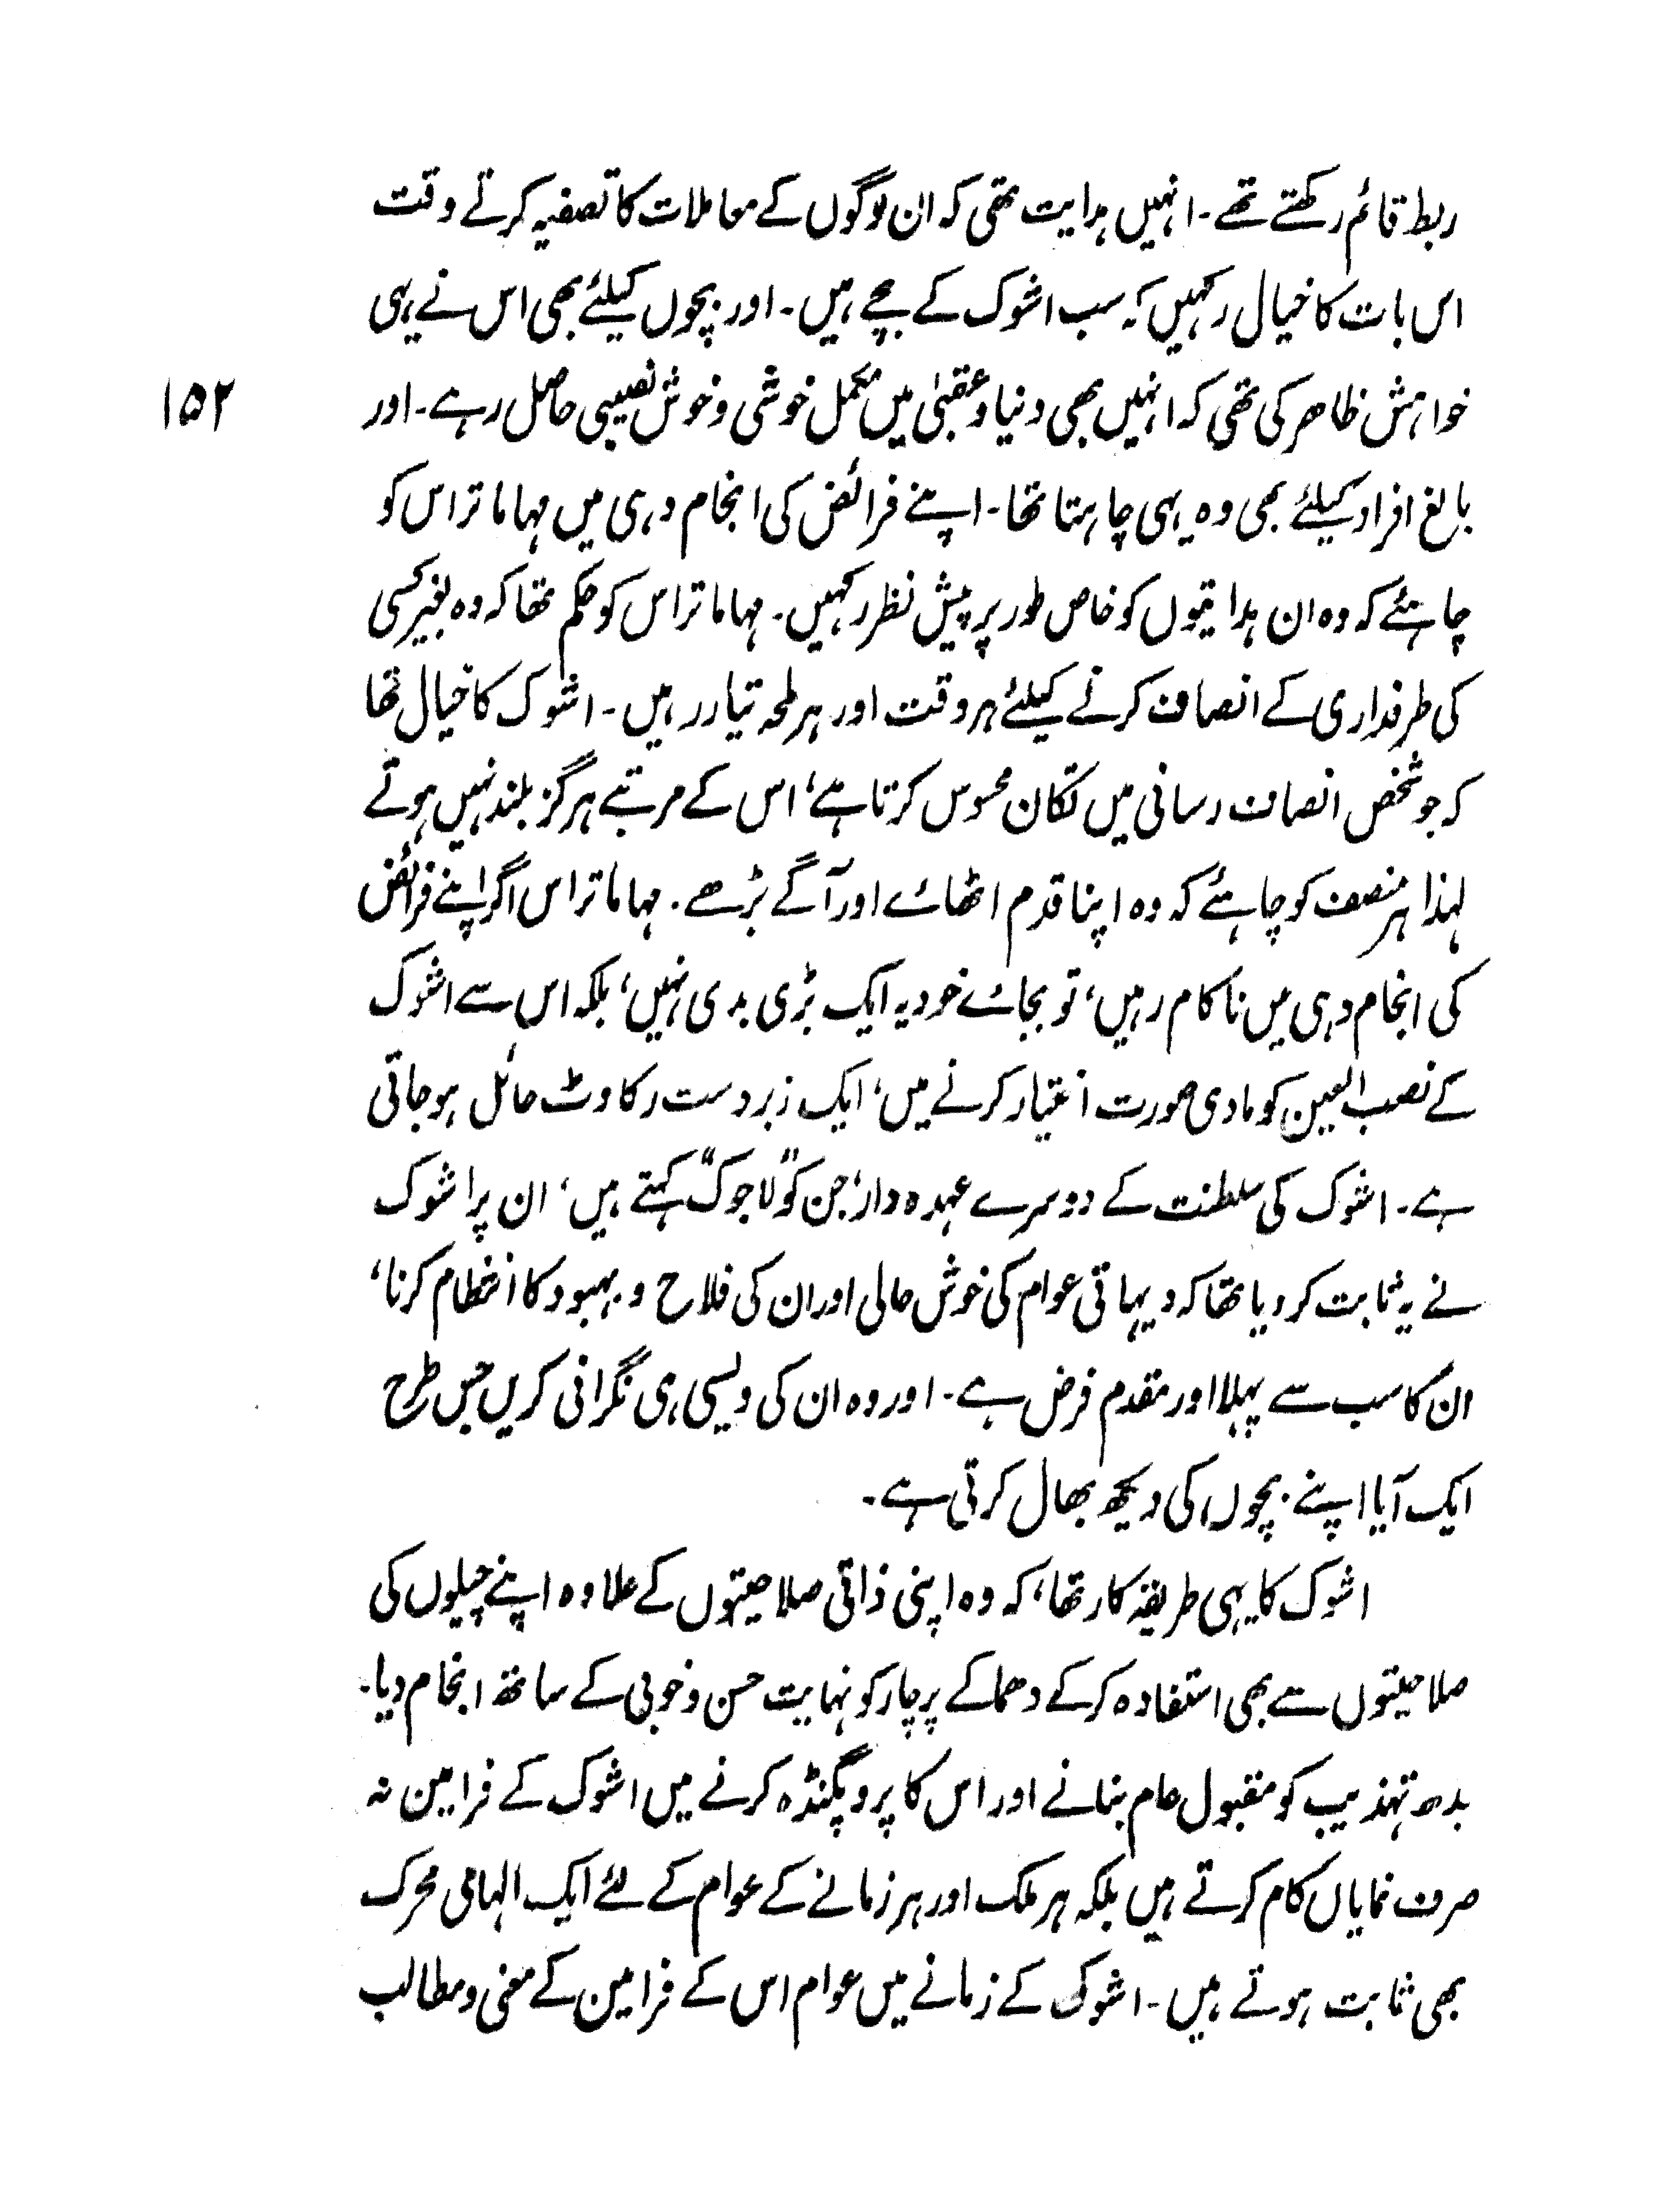 ربط قائم رکھتے تھے۔ انہیں ہدایت تھی کہ ان لوگوں کے معاملات کا تصفیہ کرتے وقت
اس بات کا خیال رکہیں کہ سب اشوک کے بچے ہیں۔ اور بچوں کیلئے بھی اس نے یہی
خواہش ظاہر کی تھی کہ انہیں بھی دنیا و عقبیٰ میں مکمل خوشی و خوش نصیبی حاصل رہے۔ اور
۱۵۲
بالغ افراد کیلئے بھی وہ یہی چاہتا تھا۔ اپنے فرائض کی انجام دہی میں مہاماتراس کو
چاہئے کہ وہ ان ہدایتوں کو خاص طور پر پیش نظر رکہیں۔ مہاماتراس کو حکم تھا کہ وہ بغیر کسی
کی طرفداری کے انصاف کرنے کیلئے ہر وقت اور ہر لمحہ تیار رہیں۔ اشوک کا خیال تھا
کہ جو شخص انصاف رسانی میں تکان محسوس کرتا ہے، اس کے مرتبے ہرگز بلند نہیں ہوتے
لہذا ہر منصف کو چاہئے کہ وہ اپنا قدم اٹھائے اور آگے بڑھے۔ مہاماتراس اگر اپنے فرائض
کی انجام دہی میں ناکام رہیں، تو بجائے خود یہ ایک بڑی بدی نہیں، بلکہ اس سے اشوک
کے نصب العین کو مادی صورت اختیار کرنے میں، ایک زبردست رکاوٹ حائل ہوجاتی
ہے۔ اشوک کی سلطنت کے دوسرے عہدہ دار، جن کو "لاجوک" کہتے ہیں، ان پر اشوک
نے یہ ثابت کردیا تھا کہ دیہاتی عوام کی خوش حالی اور ان کی فلاح و بہبود کا انتظام کرنا،
ان کا سب سے پہلا اور مقدم فرض ہے۔ اور وہ ان کی ویسی ہی نگرانی کریں جس طرح
ایک آیا اپنے بچوں کی دیکھ بھال کرتی ہے۔
اشوک کا یہی طریقۂ کار تھا، کہ وہ اپنی ذاتی صلاحیتوں کے علاوہ اپنے چیلوں کی
صلاحیتوں سے بھی استفادہ کرکے دھما کے پرچار کو نہایت حسن و خوبی کے ساتھ انجام دیا۔
بدھ تہذیب کو مقبول عام بنانے اور اس کا پروپگنڈہ کرنے میں اشوک کے فرامین نہ
صرف نمایاں کام کرتے ہیں بلکہ ہر ملک اور ہر زمانے کے عوام کے لئے ایک الہامی محرک
بھی ثابت ہوتے ہیں۔ اشوک کے زمانے میں عوام اس کے فرامین کے معنی و مطالب